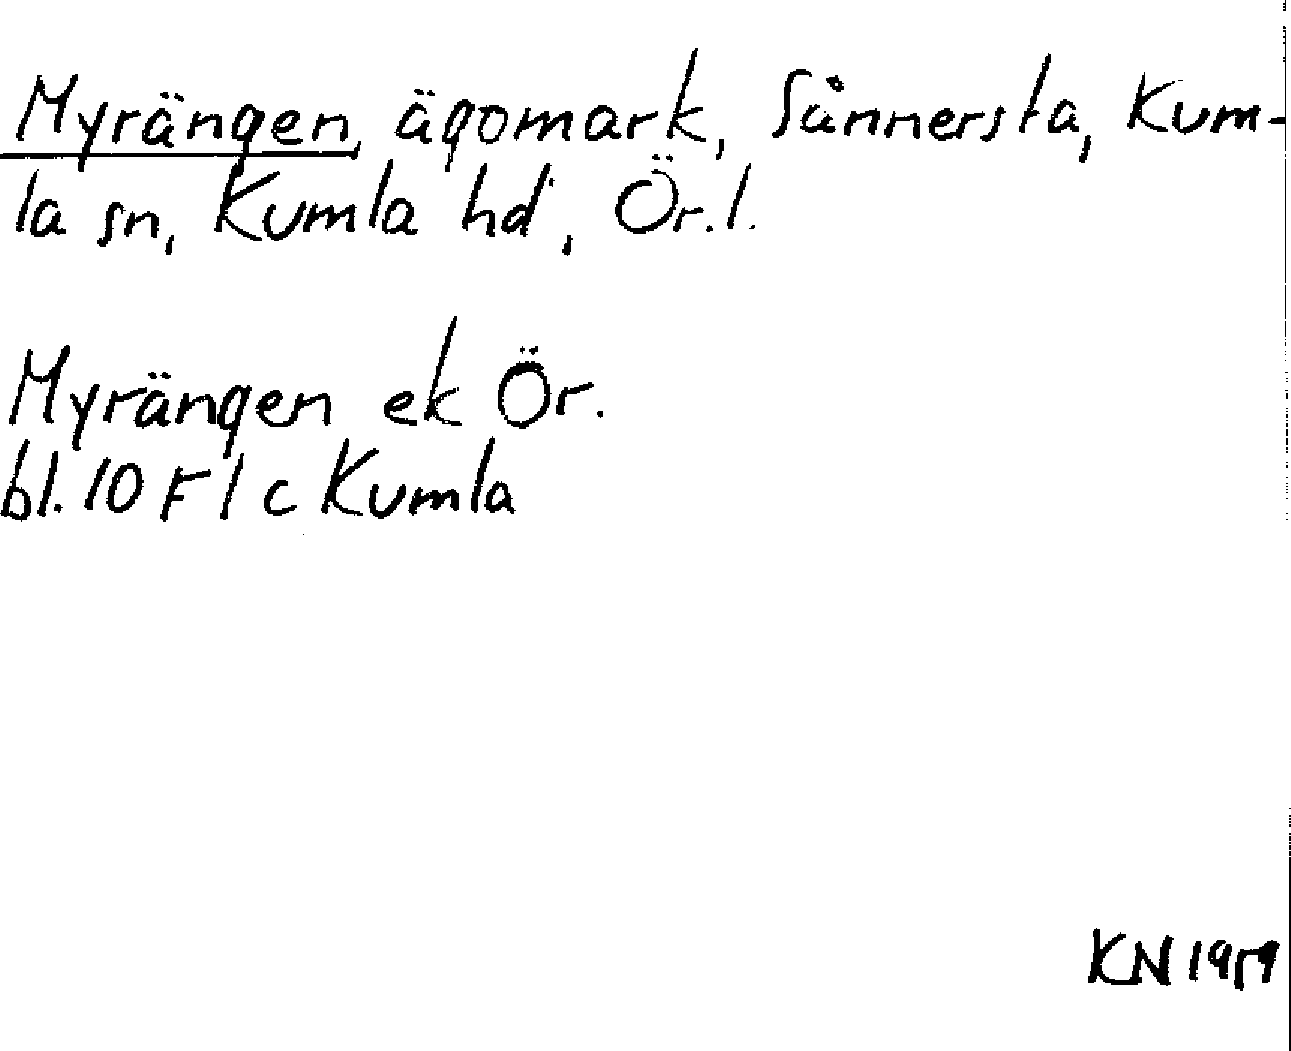 Myrängen, ägomark, Sånnersta, Kum-
la sn, Kumla hd, Ör. l.
Myrängen ek Ör.
bl. 10 F 1 c Kumla
KN 1959